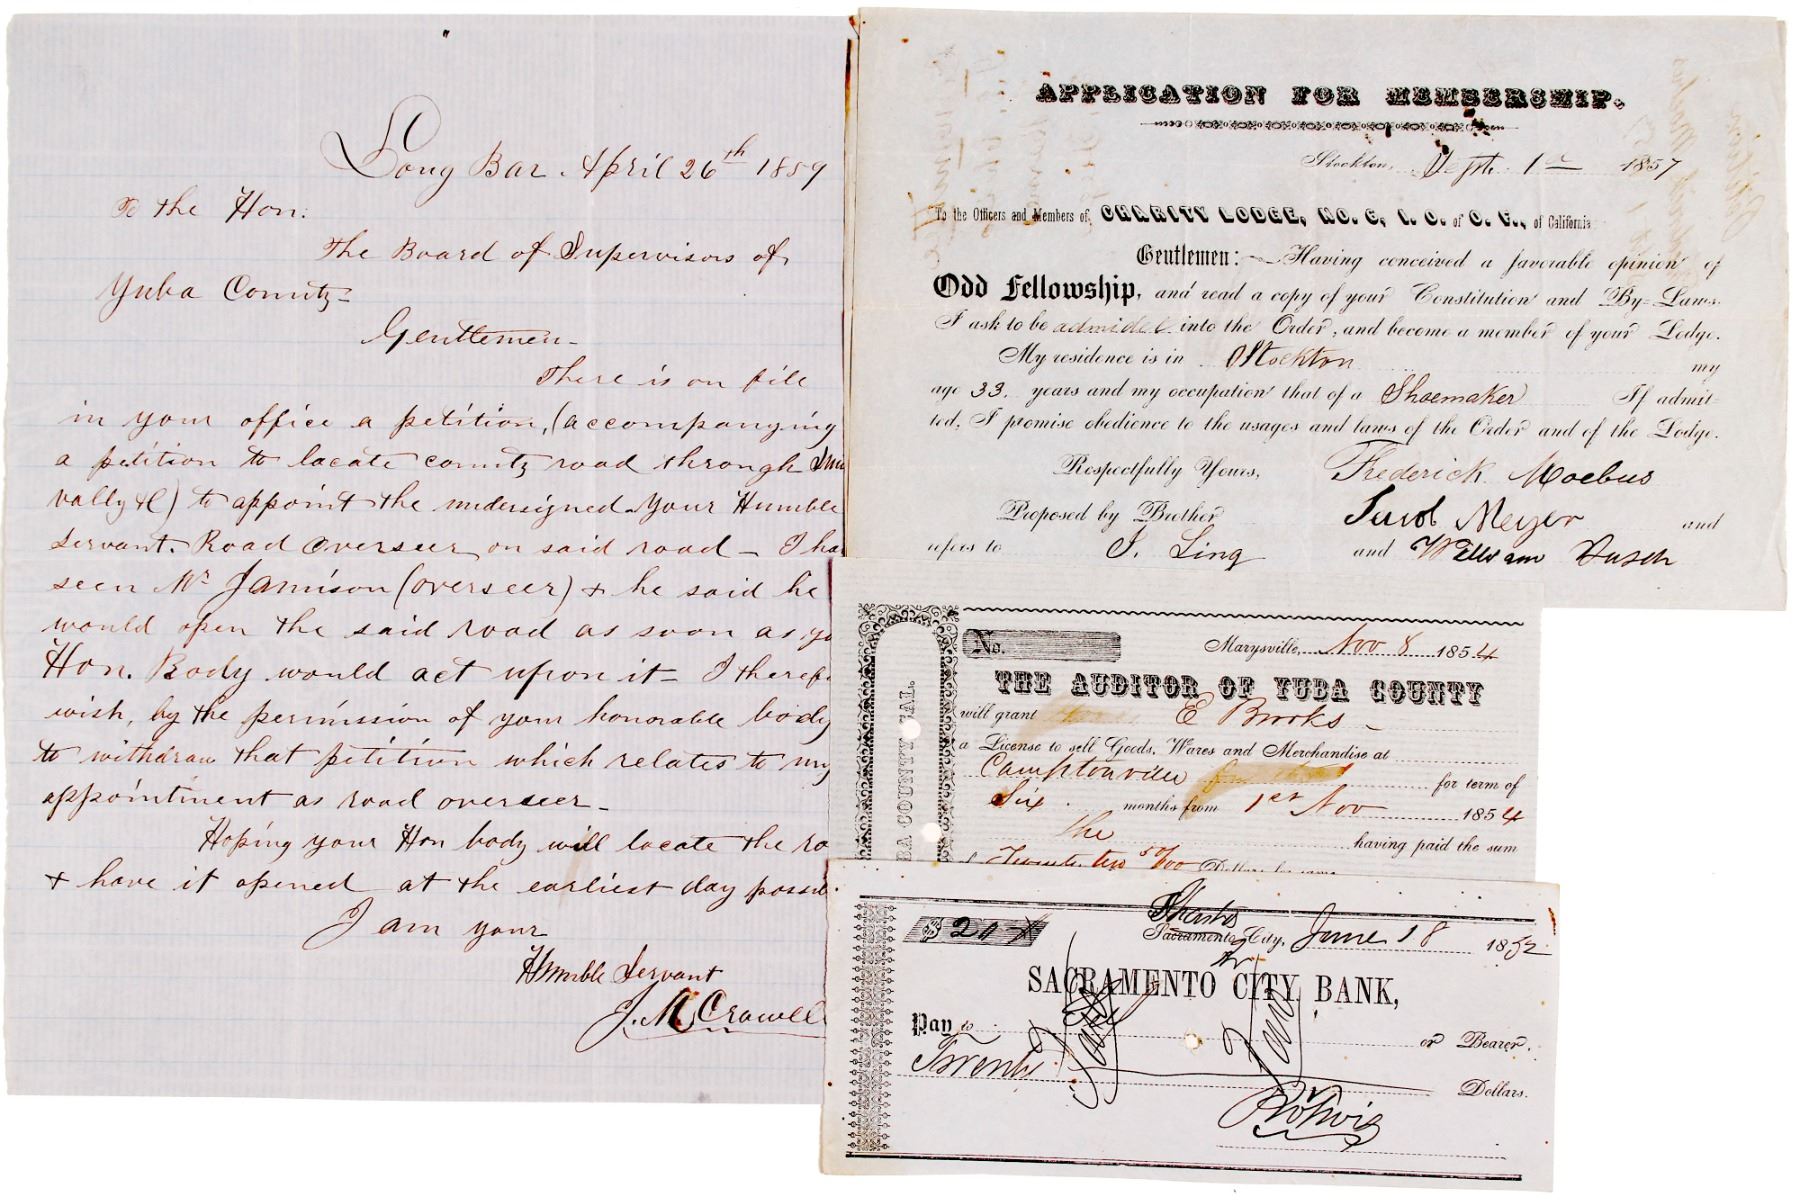 Long Bar. April 26th 1859
To the Hon.
The Board of Supervisors of
Yuba County
Gentlemen
There is on file
in your office a petition, (accompanying
a petition to locate county road through
vally &C) to appoint the undersigned Your Humble
Servant. Road Overseer on said road – I ha
seen Mr Jamison (overseer) & he said he
would open the said road as soon as yo
Hon. Body would act upon it – I theref
wish, by the permission of your honorable body
to withdraw that petition which relates to my
appointment as road overseer –
Hoping your Hon body will locate the ro
& have it opened at the earliest day possi
I am your
Humble Servant
J. M. Crowell
APPLICATION FOR MEMBERSHIP.
Stockton, Sept. 1st 1857
To the Officers and Members of CHARITY LODGE, NO. 6, I. O. of O. F., of California.
Gentlemen: Having conceived a favorable opinion of
Odd Fellowship, and read a copy of your Constitution and By-Laws.
I ask to be admided into the Order, and become a member of your Lodge.
My residence is in Stockton my
age 33. years and my occupation that of a Shoemaker If admit
ted, I promise obedience to the usages and laws of the Order and of the Lodge.
Respectfully Yours, Frederick Moebus
Proposed by Brother Jacob Meyer and
refers to J. Ling and William Dusch
No.
Marysville, Nov 8 1854
THE AUDITOR OF YUBA COUNTY
will grant E Brooks
a License to sell Goods, Wares and Merchandise at
Camptonville for term of
Six months from 1st Nov 1854
the having paid the sum
Twenty two 50/00 Dollars
BA COUNTY CAL.
$ 20
Shasta
Sacramento City, June 18 1852
SACRAMENTO CITY BANK,
Pay to or Bearer.
Twenty Dollars.